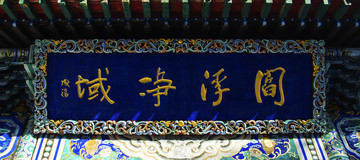 閻浮净域